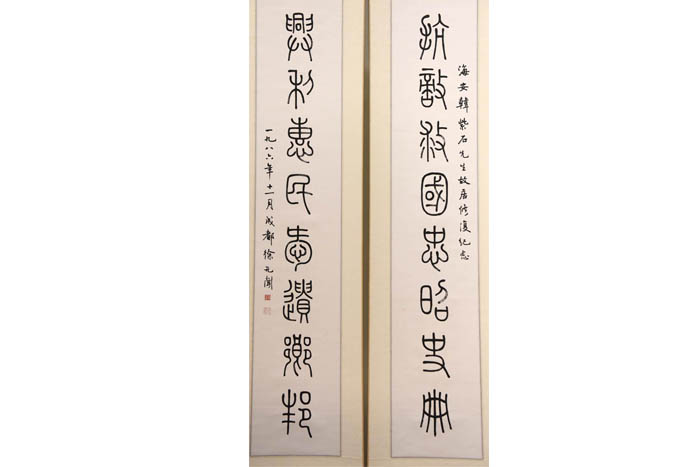 海安韓紫石先生故居修復紀念
抗敵救國忠昭史冊
興利惠民愛遺鄉邦
一九八六年十一月成都徐无聞